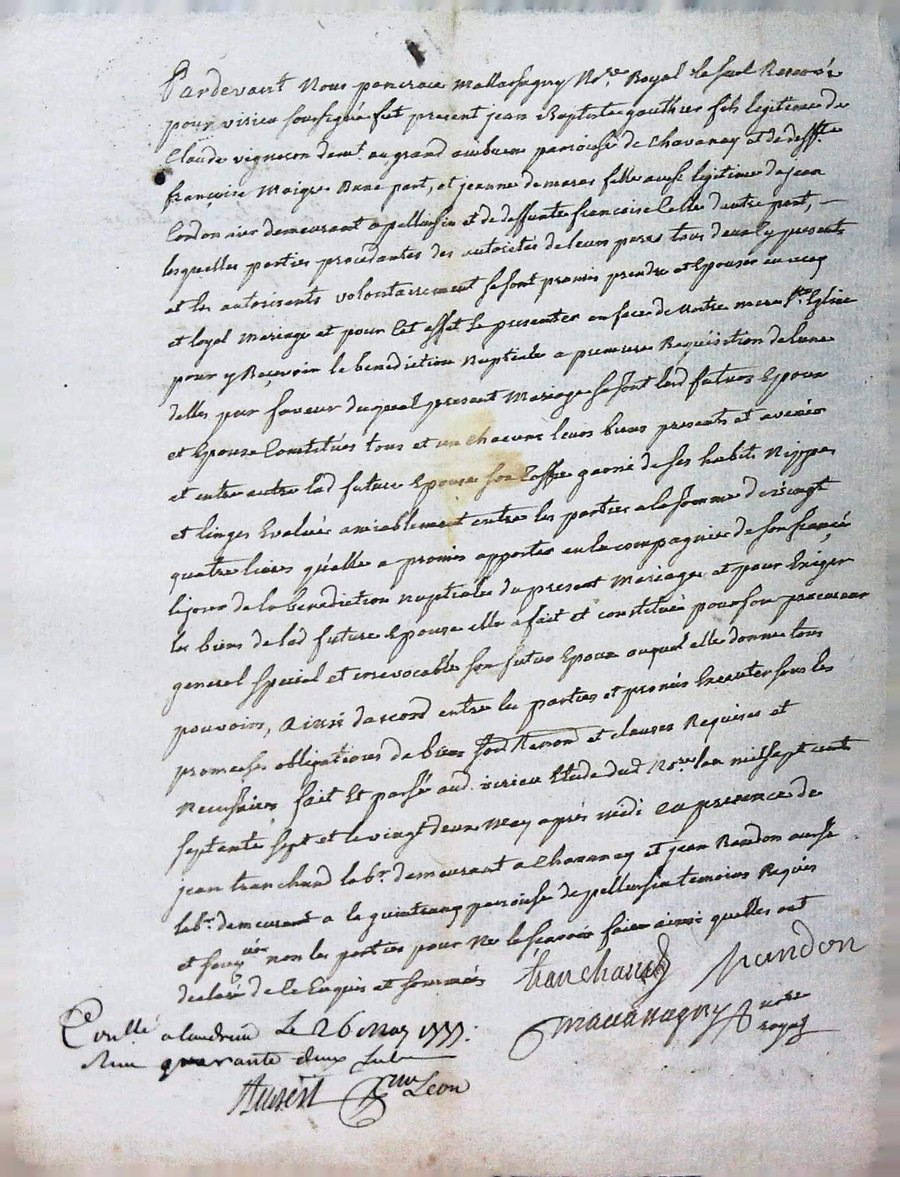 Pardevant Nous pancrace mallassagny No.re Royal le seul Reservé
pour virieu soussigné fut present jean Baptiste gauthier fils legitime de
Claude vigneron demt. au grand paroisse de Chavanay et de deffte
francoise Maigre Dune part, et jeanne demares fille aussi legitime de jean
Cordonnier demeurant a pellussin et de deffunte francoise Celle Dautre part, –
lesquelles parties procedantes des autorités de leurs peres tous deux Cy presents
et les autorisants volontairement se sont promis prendre et Epouser en vray
et loyal Mariage et pour Cet effet se presenter en face de Notre mere Ste Eglise
pour y Recevoir la benediction Nuptiale a premiere Requisition de lune
delles par faveur duquel present Mariage se sont lesd futurs Epoux
et Epouse Constitués tous et un chacuns leurs biens presents et avenir
et entre autre lad future Epouse son Coffre garni de ses habits Nippes
et linges Evalués amiablement entre les parties a la somme de vingt
quatre livres quelle a promis apporter en la compagnie de son fiancé
le jour de la benediction nuptiale du present Mariage, et pour Exiger
les biens de lad future Epouse elle a fait et constitué pour son procureur
general special et irrevocable son futur Epoux auquel elle donne tous
pouvoirs, Ainsi dacord entre les parties et promis Executer sous les
promesses obligations de biens et clauses Requises et
Necessaires fait Et passé aud virieu Etude dud No.re lan mil sept cents
septante sept et le vingt deux May après midi En presence de
jean tranchand labr. demeurant a Chavanay et jean Randon aussi
labr. demeurant a la paroisse de pellussin temoins Requis
et soussignés non les parties pour Ne le scavoir faire ainsi quelles ont
declaré de Ce Enquis et sommés tranchand Randon
Mallassagny No.re
royal
Conllé a Condrieu Le 26 May 1777.
Reçu quarante deux
Aubert Leon